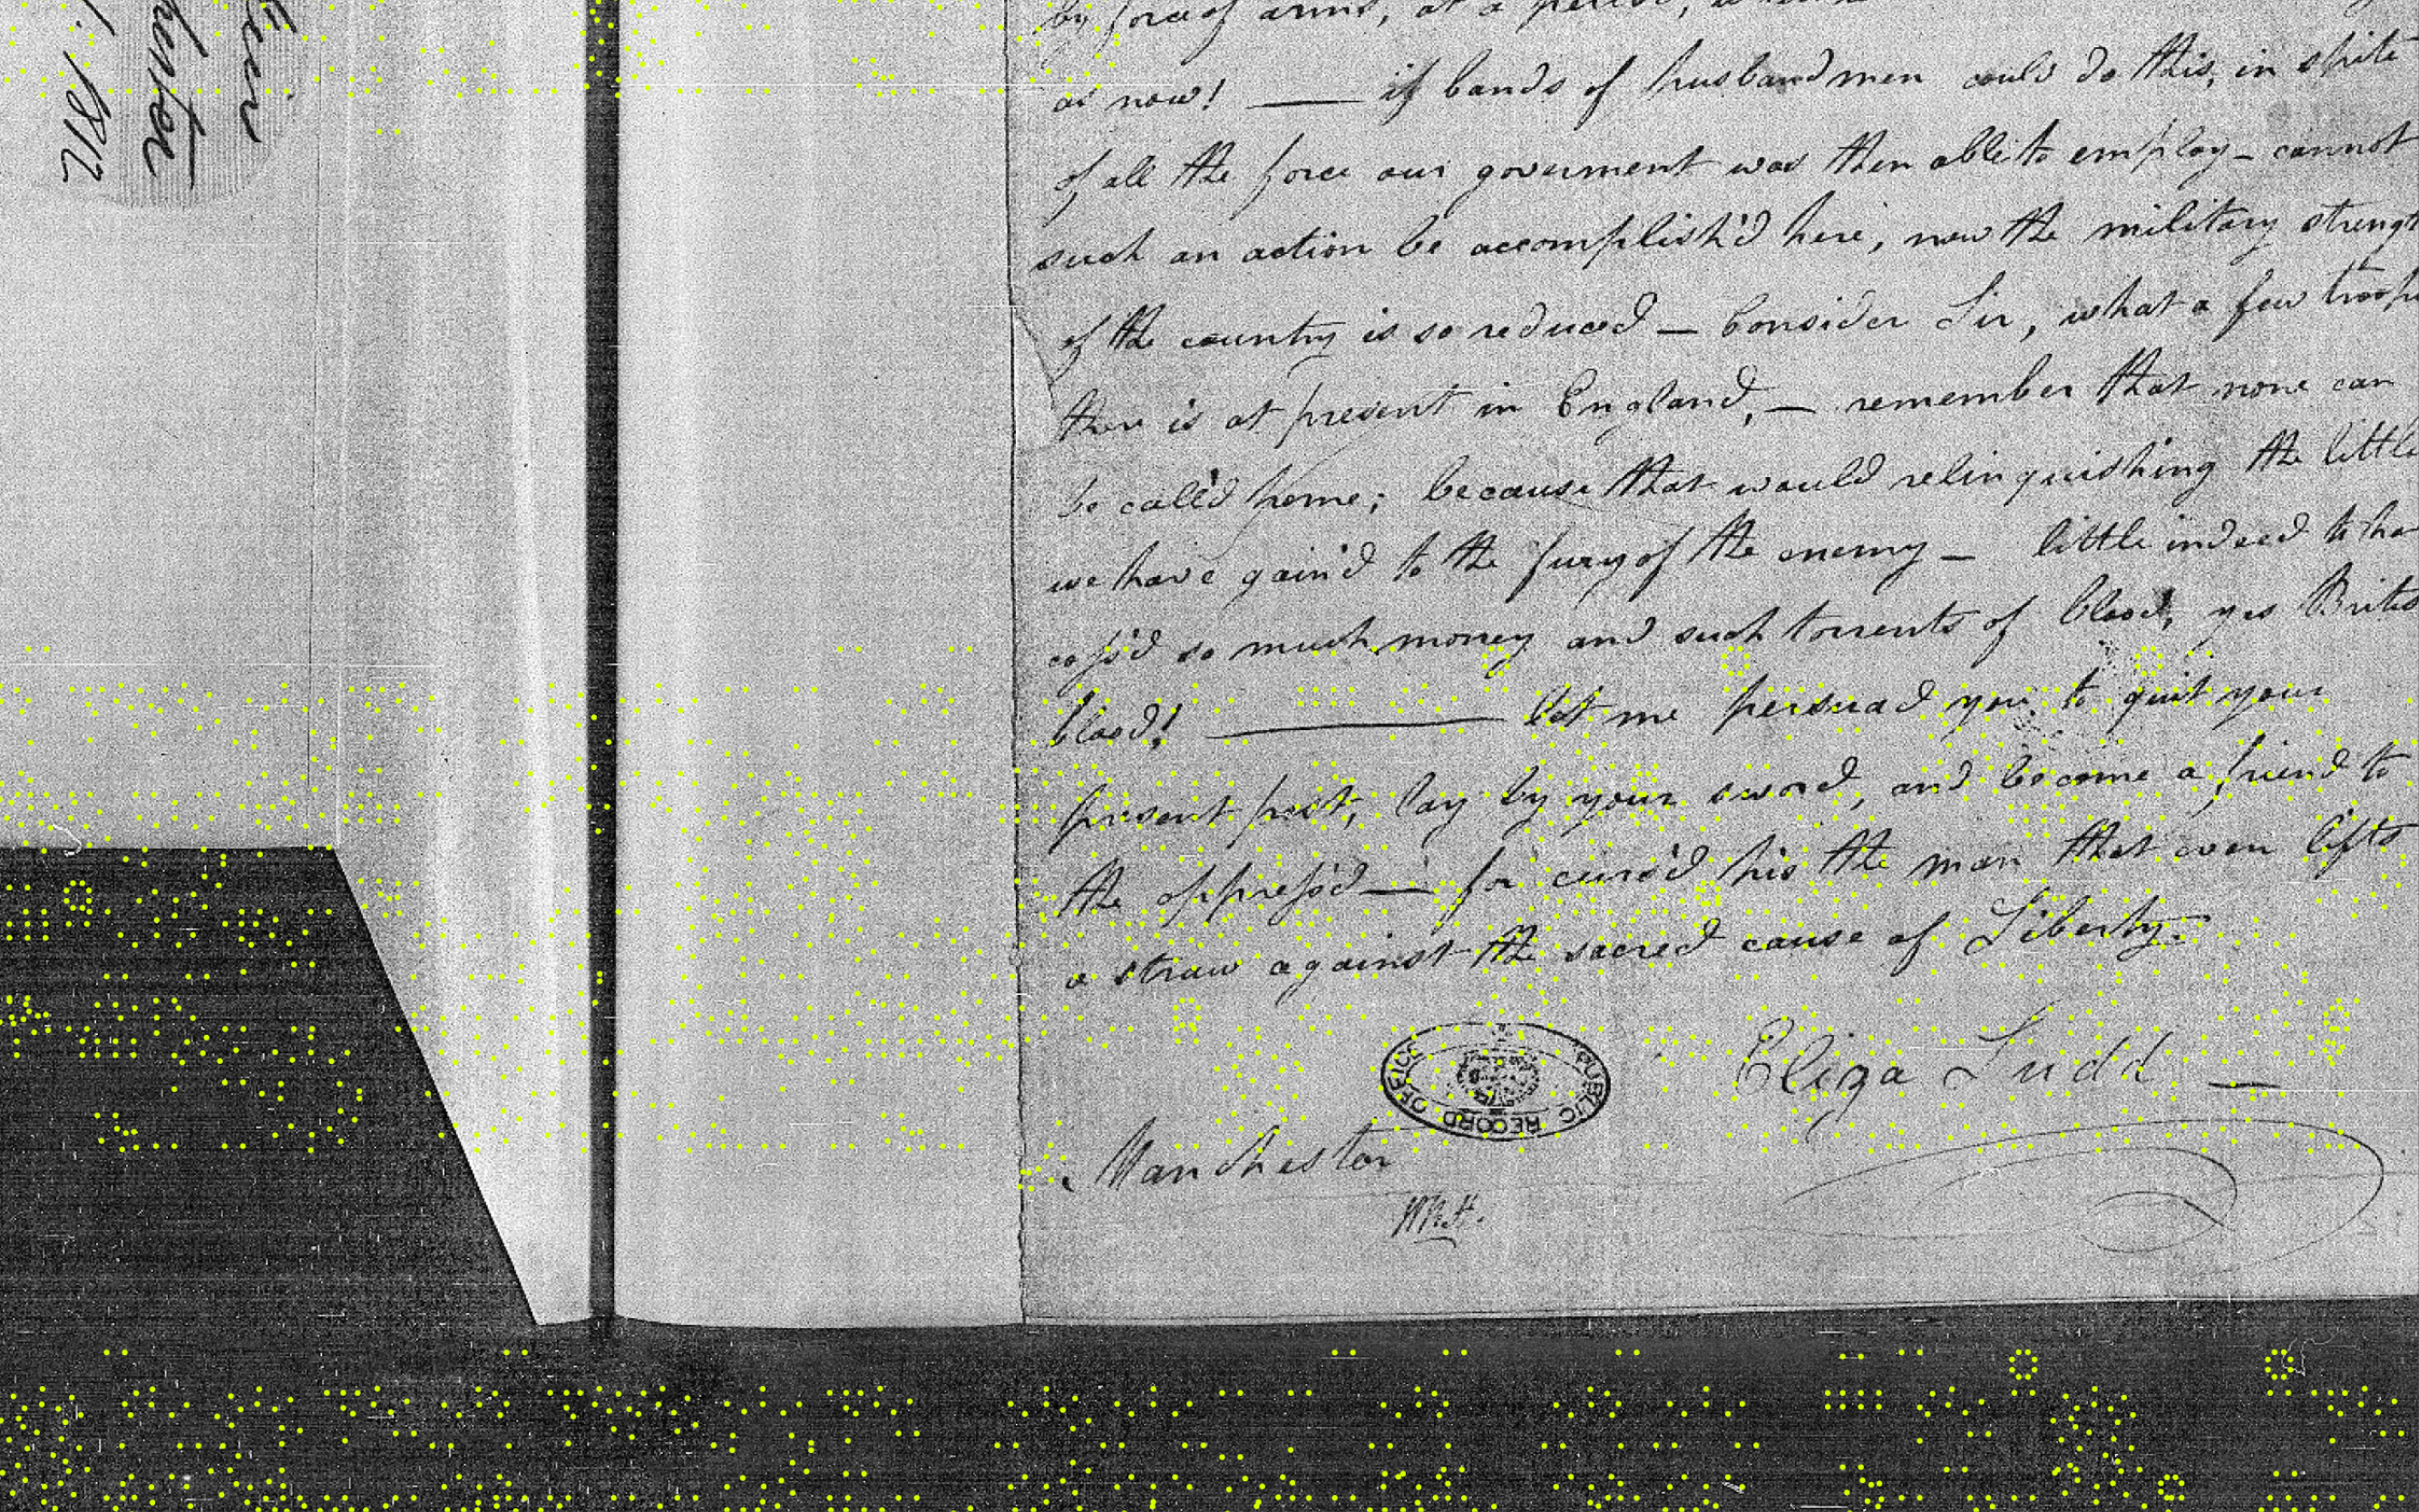 1812
by force of arms, at a
as now! — if bands of husbandmen could do this, in spite
of all the force our goverment was then able to employ – cannot
such an action be accomplish'd here, now the military strengt
of the country is so reduced – Consider Sir, what a few troops
ther is at present in England, – remember that none can
be call'd home; because that would relinquishing the little
we have gain'd to the fury of the enemy – little indeed to ha
coss'd so much money and such torrents of blood, yes British
blood! — let me persuad you to quit your
present post, lay by your sword, and become a friend to
the oppress'd — for curs'd his the man that even lifts
a straw against the sacred cause of Liberty.
Eliza Ludd —
PUBLIC RECORD OFFICE
Manchester